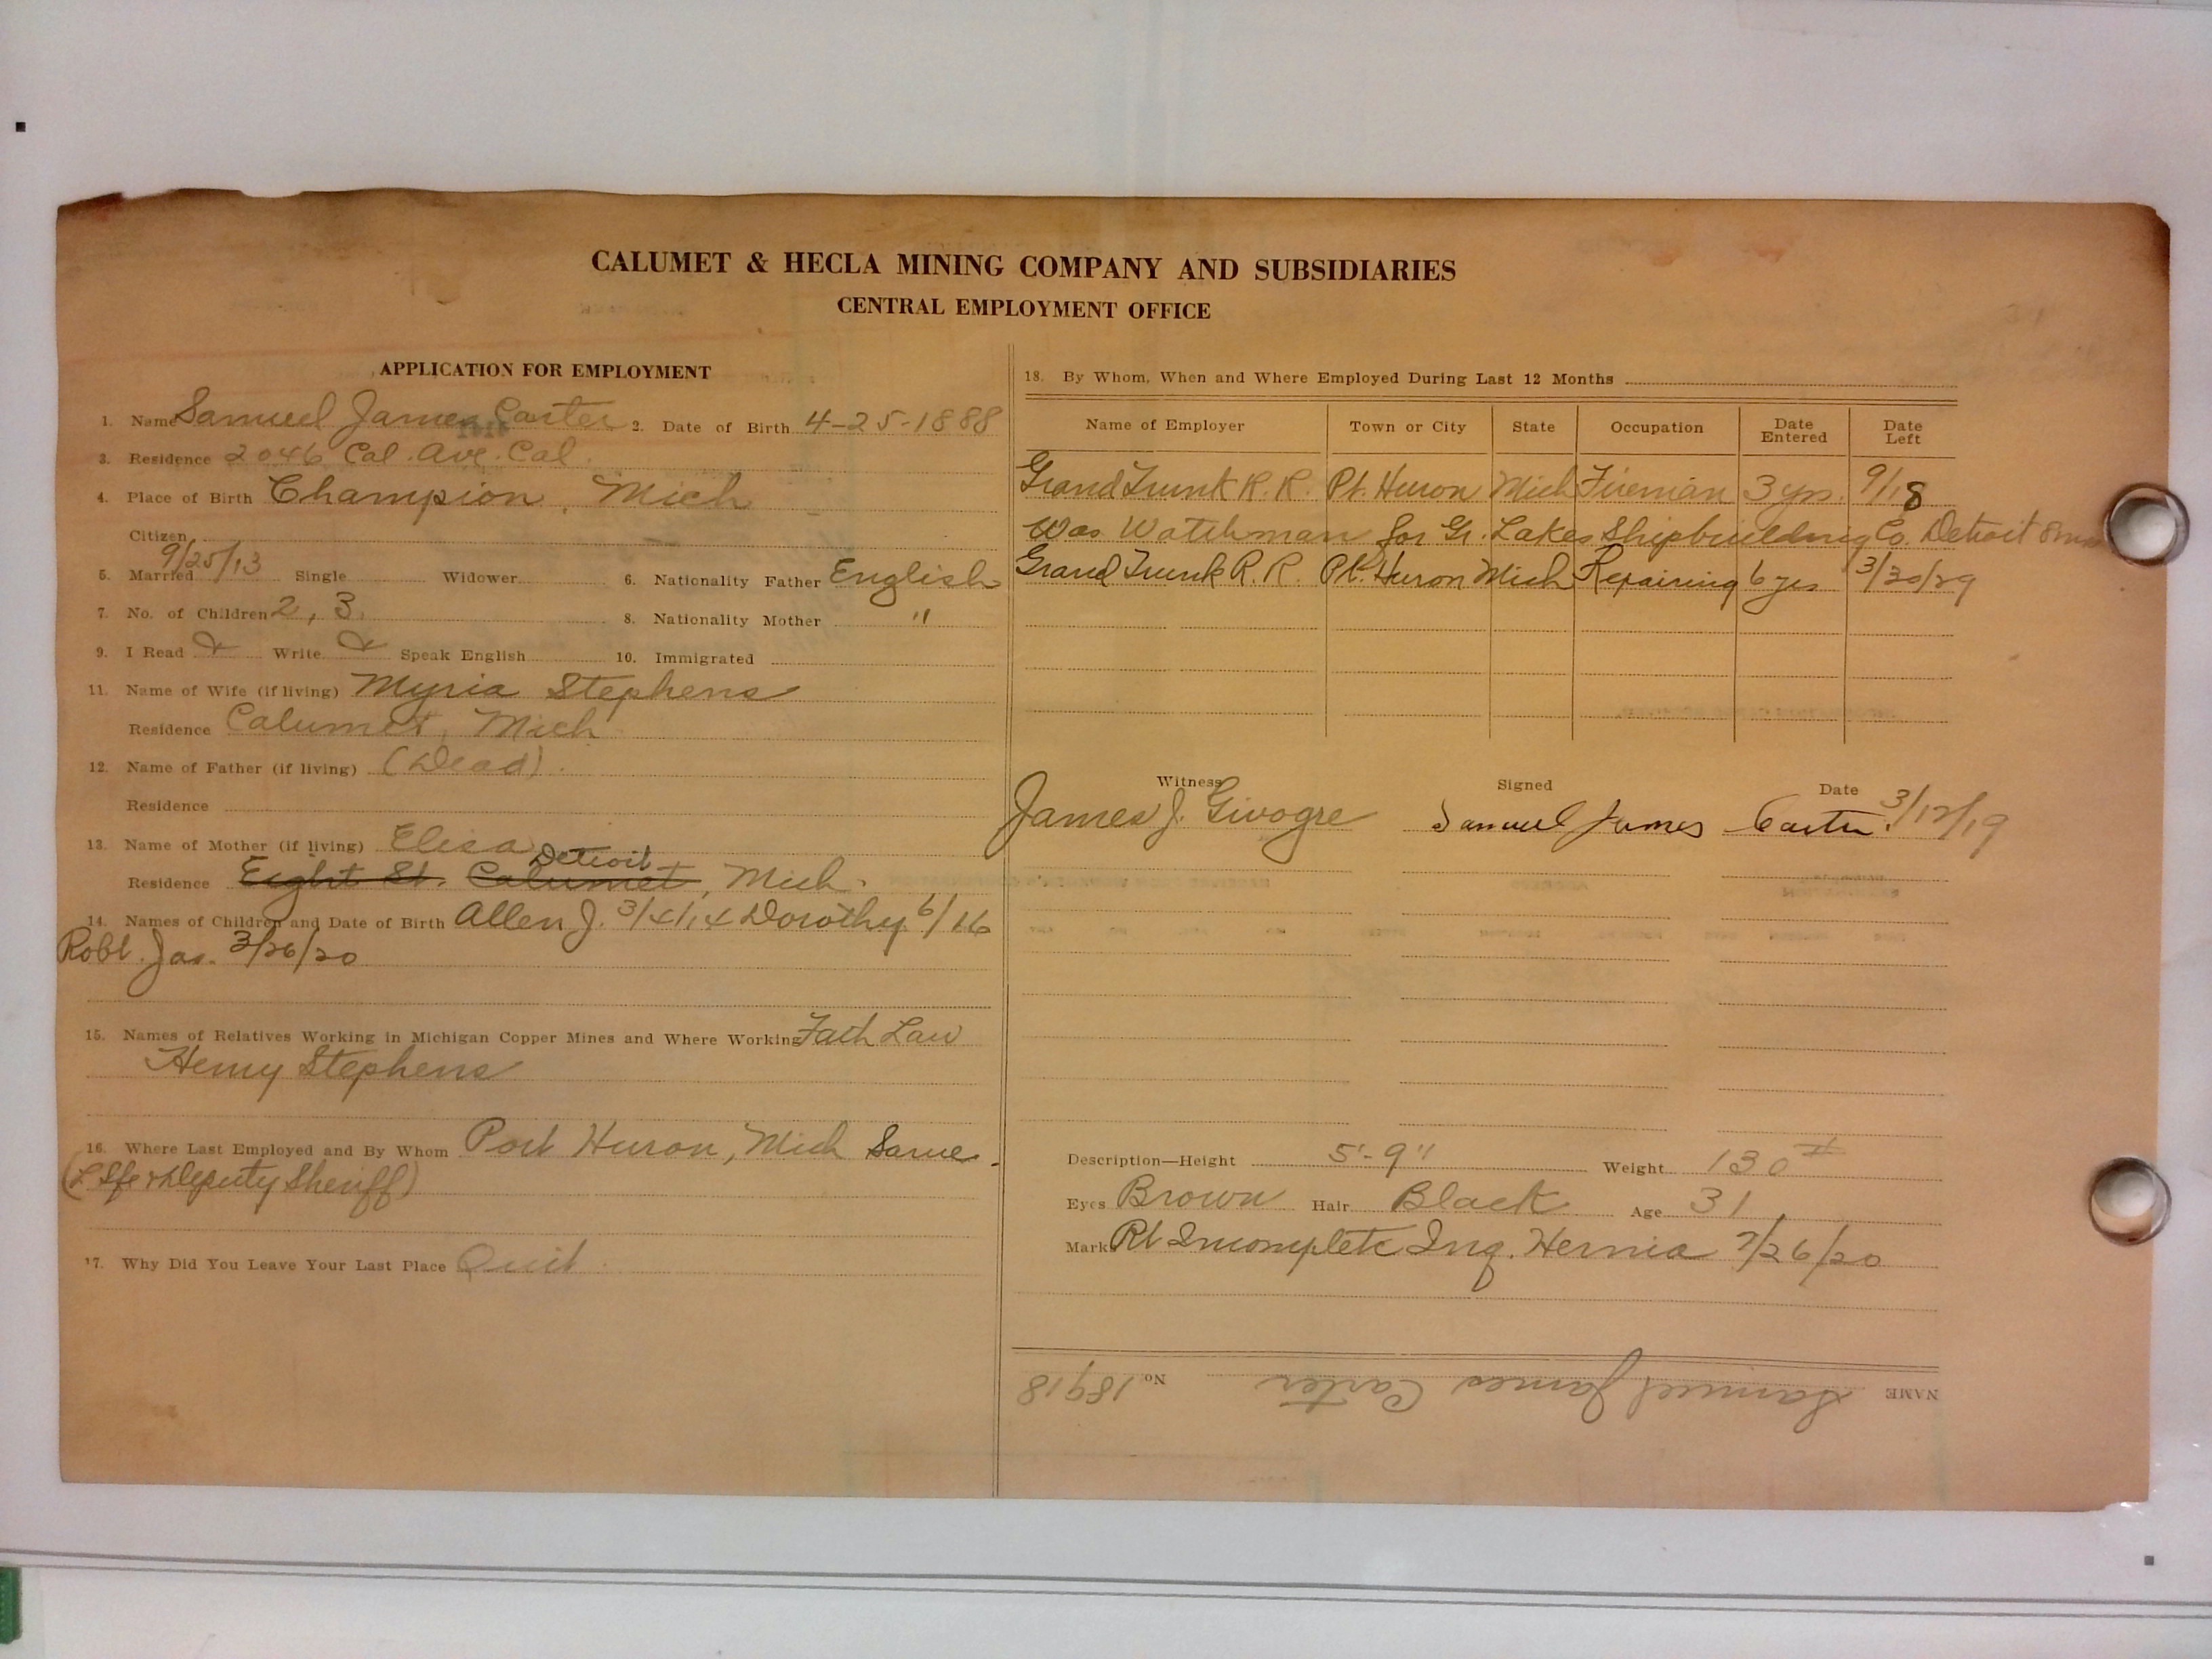 CALUMET & HECLA MINING COMPANY AND SUBSIDIARIES
CENTRAL EMPLOYMENT OFFICE
APPLICATION FOR EMPLOYMENT
1. Name Samuel James Carter 2. Date of Birth 4-25-1888
3. Residence 2046 Cal. Ave. Cal.
4. Place of Birth Champion, Mich
Citizen
5. Married 9/25/13 Single Widower 6. Nationality Father English
7. No. of Children 2, 3. 8. Nationality Mother "
9. I Read Write Speak English 10. Immigrated
11. Name of Wife (if living) Myria Stephens
Residence Calumet, Mich
12. Name of Father (if living) (Dead).
Residence
13. Name of Mother (if living) Elisa
Detroit
Residence Eight St. Calumet, Mich.
14. Names of Children and Date of Birth Allen J. 3/4/14 Dorothy 6/16
Robt. Jas. 3/26/20
15. Names of Relatives Working in Michigan Copper Mines and Where Working Fath Law
Henry Stephens
16. Where Last Employed and By Whom Port Huron, Mich Same.
Deputy Sheriff)
17. Why Did You Leave Your Last Place Quit.
18. By Whom, When and Where Employed During Last 12 Months
Name of Employer Town or City State Occupation Date Entered Date Left
Grand Trunk R.R. Pt. Huron Mich Fireman 3 yrs. 9/18
Was Watchman for Gr. Lakes Shipbuilding Co. Detroit 8 mos
Grand Trunk R.R. Pt. Huron Mich Repairing 6 yrs 3/30/29
Witness Signed Date
James J. Givogre Samuel James Carter. 3/12/19
Description—Height 5'-9" Weight 130#
Eyes Brown Hair Black Age 31
Marks Rt Incomplete Ing. Hernia 7/26/20
NAME Samuel James Carter No 18918